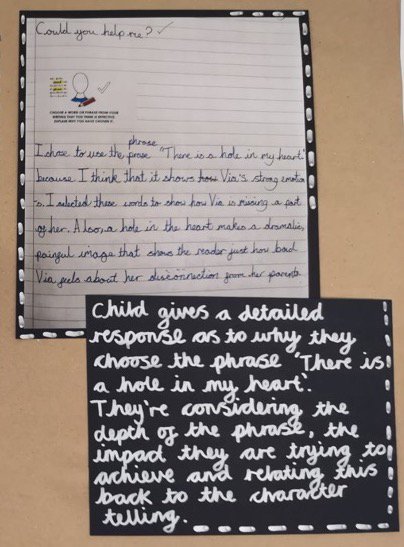 Could you help me?
CHOOSE A WORD OR PHRASE FROM YOUR
WRITING THAT YOU THINK IS EFFECTIVE.
EXPLAIN WHY YOU HAVE CHOSEN IT.
phrase
I chose to use the prase "There is a hole in my heart."
because I think that it shows how Via's strong emotion
s. I selected these words to show how Via is missing a part
of her. Also, a hole in the heart makes a dramatic,
painful image that shows the reader just how bad
Via feels about her disconnection from her parents.
Child gives a detailed
response as to why they
choose the phrase 'There is
a hole in my heart'.
They're considering the
depth of the phrase, the
impact they are trying to
achieve and relating this
back to the character
telling.